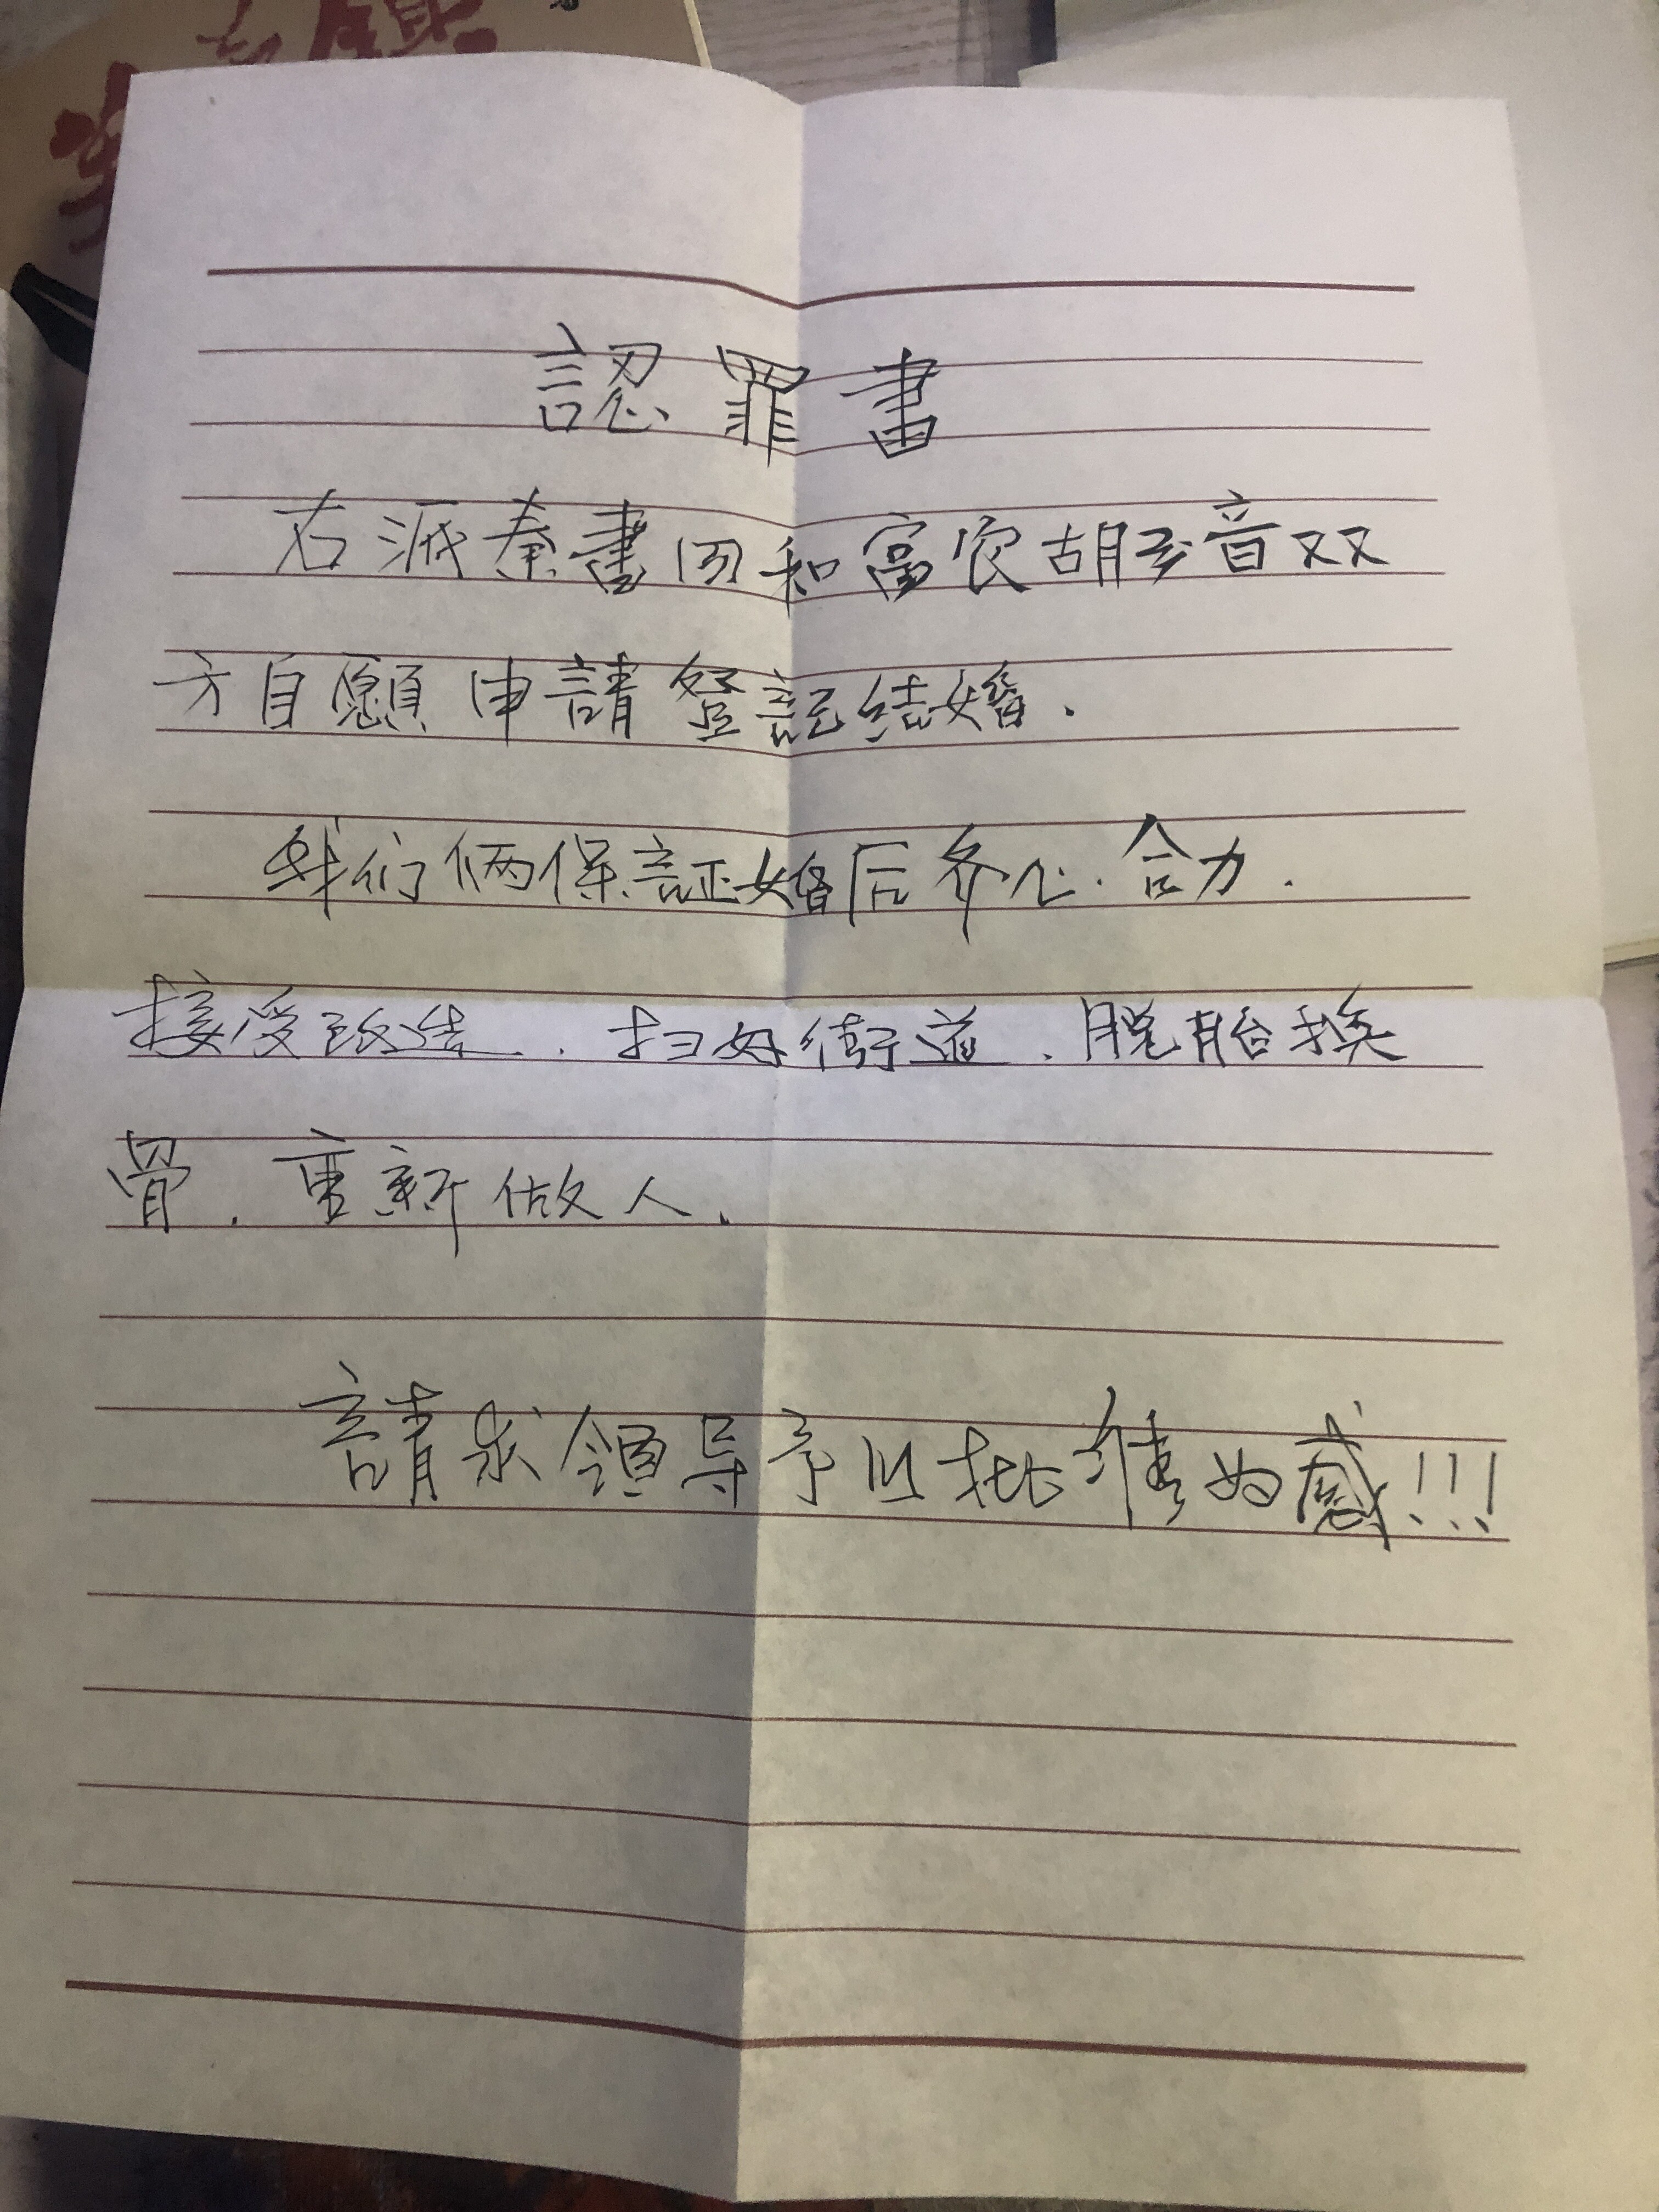 認罪書
右派秦書田和富农胡玉音双
方自願申請登記结婚.
我们俩保証婚后齐心.合力.
接受改造..扫好街道.脱胎换
骨.重新做人.
請求领导予以批准为感!!!